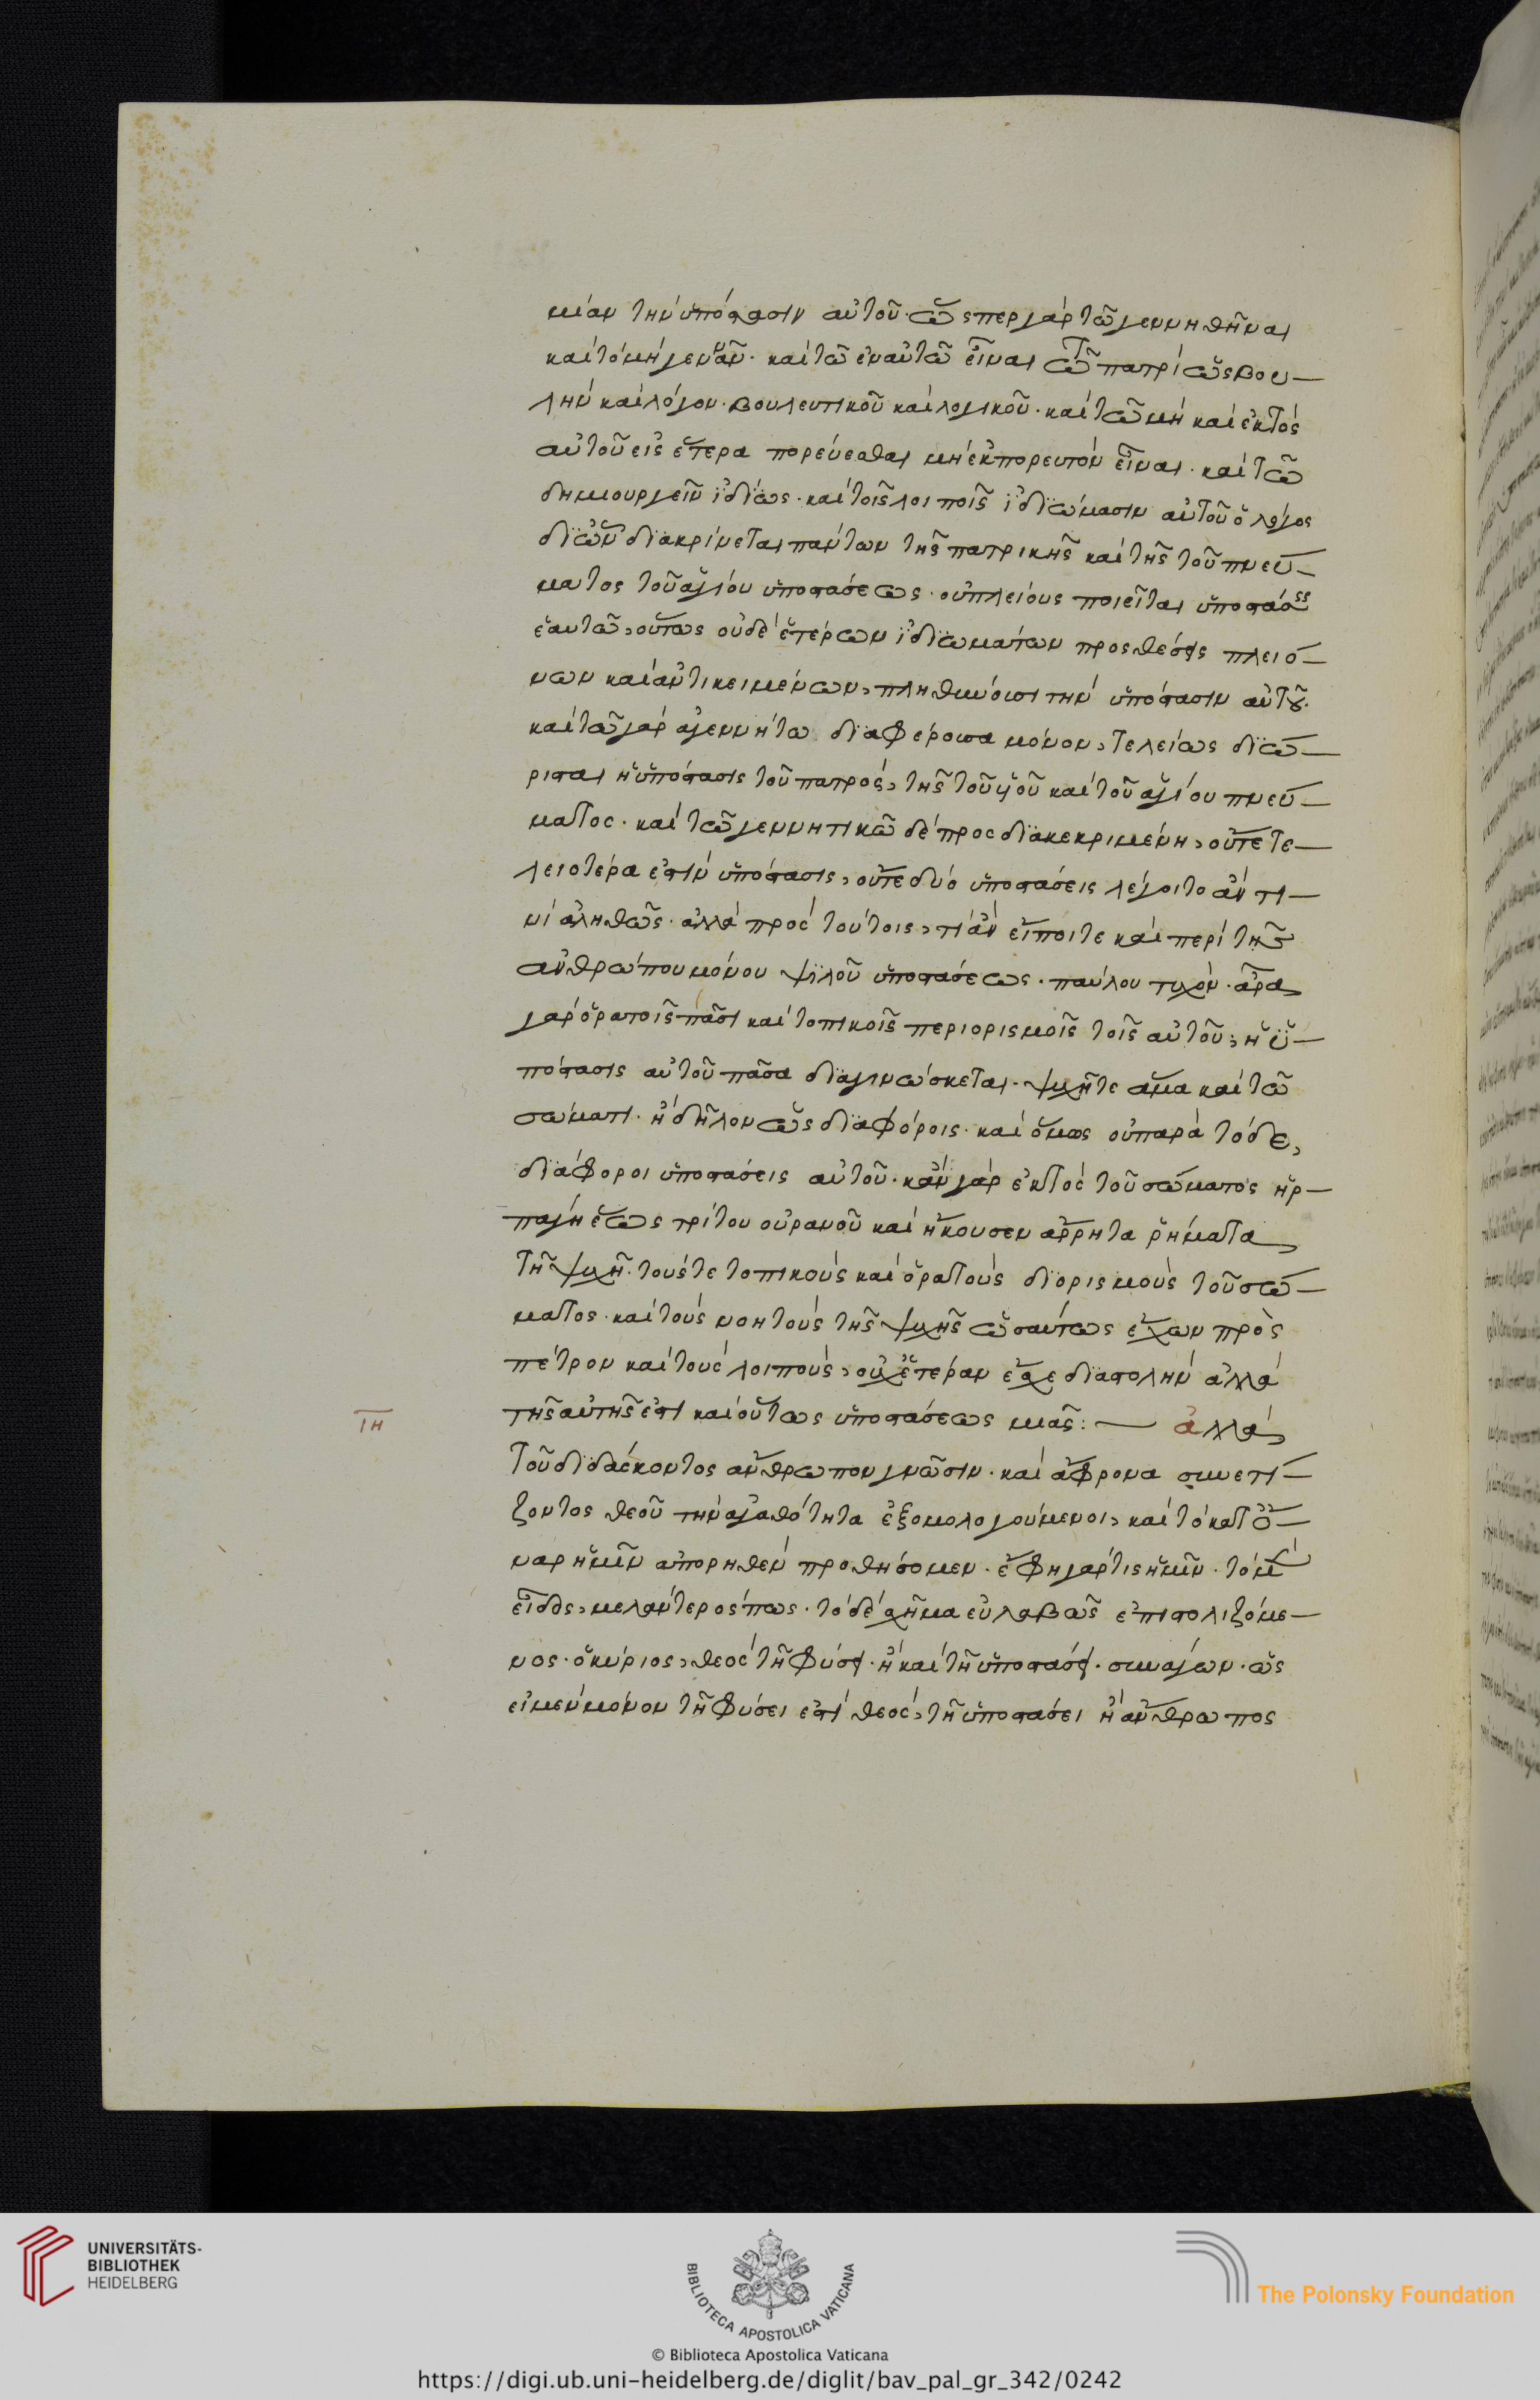 μίαν τὴν ὑπόστασιν αὐτοῦ· ὥσπερ γὰρ τῶ γεννηθῆναι
καὶ τὸ μὴ γεννᾶν· καὶ τῶ ἐν αὐτῶ εἶναι τῶ πατρὶ ὡς βου–
λὴν καὶ λόγον· βουλευτικοῦ καὶ λογικοῦ· καὶ τῶ μὴ καὶ ἐκτὸς
αὐτοῦ εἰς ἕτερα πορεύεσθαι μὴ ἐκπορευτὸν εἶναι· καὶ τῶ
δημιουργεῖν ἰδίως· καὶ τοῖς λοιποῖς ἰδιώμασιν αὐτοῦ ὁ λόγος
δι ὧν διακρίνεται πάντων τῆς πατρικῆς καὶ τῆς τοῦ πνεύ–
ματος τοῦ ἁγίου ὑποστάσεως· οὐ πλείους ποιεῖται ὑποστάσεις
ἑαυτῶ, οὕτως οὐδὲ ἑτέρων ἰδιωμάτων προσθέσεις πλειό–
νων καὶ ἀντικειμένων, πληθύνουσι τὴν ὑπόστασιν αὐτοῦ·
καὶ τῶ γὰρ ἀγεννήτω διαφέρουσα μόνον, τελείως διώ–
ρισται ἡ ὑπόστασις τοῦ πατρὸς, τῆς τοῦ υἱοῦ καὶ τοῦ ἁγίου πνεύ–
ματος· καὶ τῶ γεννητικῶ δὲ προσδιακεκριμένη, οὔτε τε–
λειοτέρα ἐστὶν ὑπόστασις, οὔτε δύο ὑποστάσεις λέγοιτο ἄν τι–
νι ἀληθῶς· ἀλλὰ πρὸς τούτοις, τί ἂν εἴποιτε καὶ περὶ τῆς
ἀνθρώπου μόνου ψιλοῦ ὑποστάσεως· παύλου τυχόν· ἆρα
γὰρ ὁρατοῖς πᾶσι καὶ τοπικοῖς περιορισμοῖς τοῖς αὐτοῦ, ἡ ὑ–
πόστασις αὐτοῦ πᾶσα διαγινώσκεται· ψυχῆ τε ἅμα καὶ τῶ
σώματι· ἢ δῆλον ὡς διαφόροις· καὶ ὅμως οὐ παρὰ τόδε,
διάφοροι ὑποστάσεις αὐτοῦ· κἂν γὰρ ἐκτὸς τοῦ σώματος ἡρ–
πάγη ἕως τρίτου οὐρανοῦ καὶ ἤκουσεν ἄρρητα ῥήματα
τῆ ψυχῆ· τούς τε τοπικοὺς καὶ ὁρατοὺς διορισμοὺς τοῦ σώ–
ματος· καὶ τοὺς νοητοὺς τῆς ψυχῆς ὡσαύτως ἔχων πρὸς
πέτρον καὶ τοὺς λοιποὺς, οὐχ ἑτέραν ἔσχε διαστολὴν ἀλλὰ
τῆς αὐτῆς ἐστι καὶ οὕτως ὑποστάσεως μιᾶς: — ἀλλὰ
ΙΗ
τοῦ διδάσκοντος ἄνθρωπον γνῶσιν· καὶ ἄφρονα συνετί–
ζοντος θεοῦ τὴν ἀγαθότητα ἐξομολογούμενοι, καὶ τὸ κατ ὄ–
ναρ ἡμῖν ἀπορηθὲν προσθήσομεν· ἔφη γάρ τις ἡμῖν· τὸ μὲν
εἶδος, μελάντερός πως· τὸ δὲ σχῆμα εὐλαβῶς ἐπιστολιζόμε–
νος· ὁ κύριος, θεὸς τῆ φύσει· ἢ καὶ τῆ ὑποστάσει· συνάγων· ὡς
εἰ μὲν μόνον τῆ φύσει ἐστὶ θεὸς, τῆ ὑποστάσει ἢ ἄνθρωπος
UNIVERSITÄTS-
BIBLIOTHEK
HEIDELBERG
BIBLIOTECA APOSTOLICA VATICANA
The Polonsky Foundation
© Biblioteca Apostolica Vaticana
https://digi.ub.uni-heidelberg.de/diglit/bav_pal_gr_342/0242